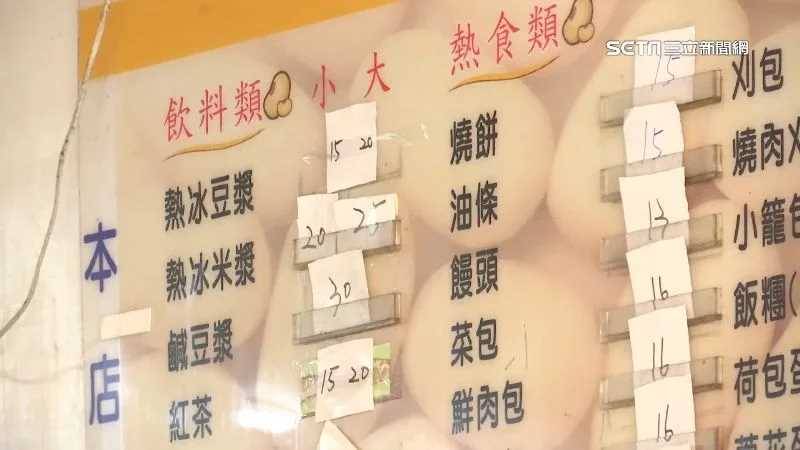 SETN 三立新聞網
本店
飲料類 小 大
熱冰豆漿 15 20
熱冰米漿 20 25
鹹豆漿 30
紅茶 15 20
熱食類
燒餅 15
油條 15
饅頭 13
菜包 16
鮮肉包 16
16
刈包
燒肉刈
小籠包
飯糰(
荷包蛋